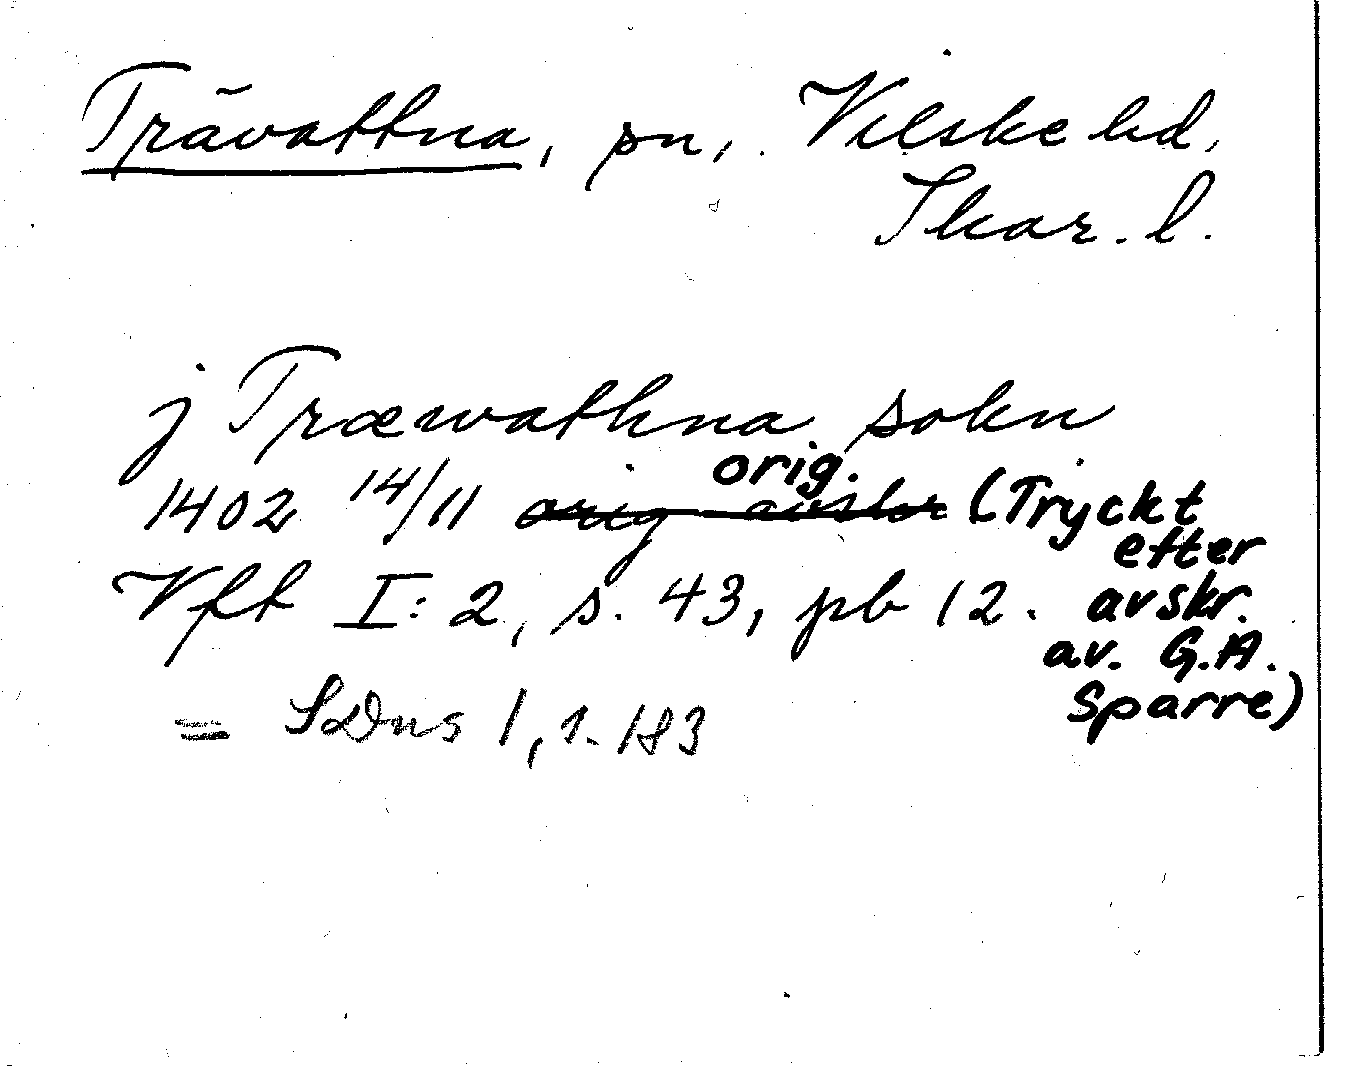 Trävattna, sn, Vilske hd,
Skar. l.
j Træwathna sokn
1402 14/11 orig avskr orig. (Tryckt
efter
Vft I:2, s. 43, nb 12. avskr.
av. G.A.
Sparre)
= SDns 1, s. 183